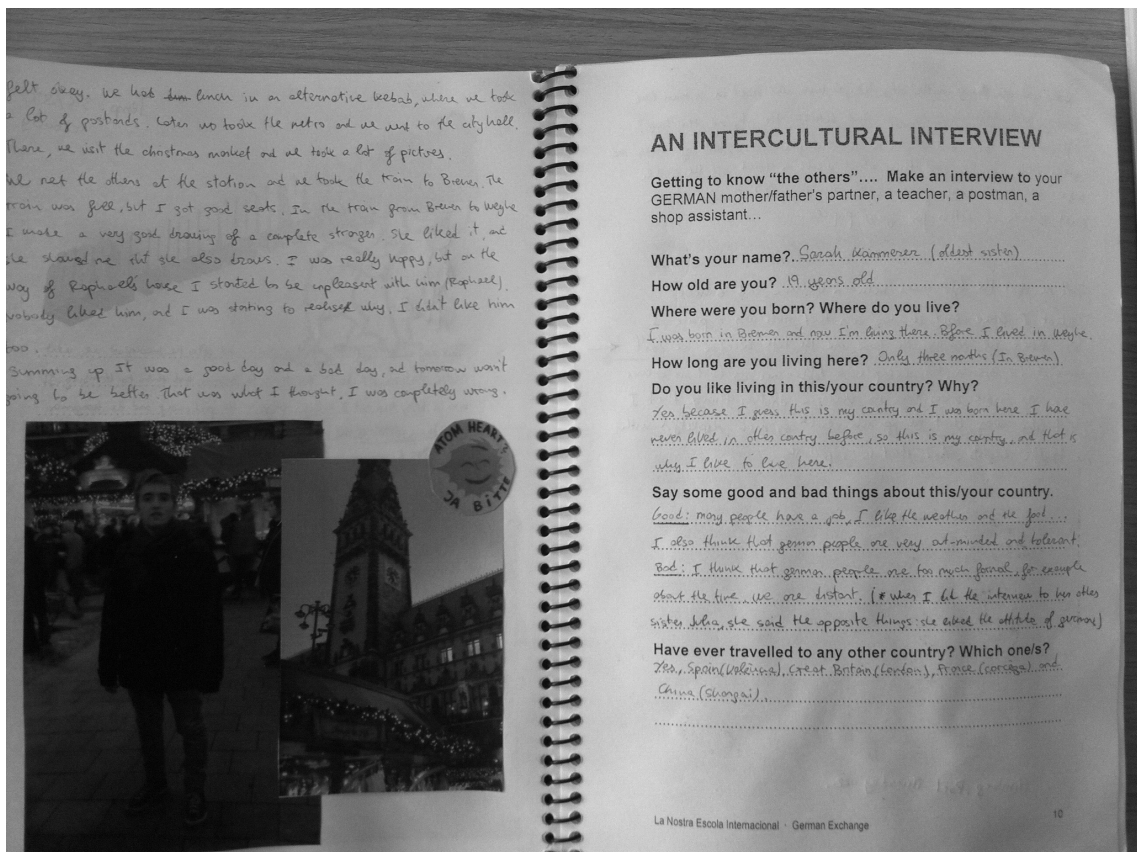 felt okay. We had lunch in an alternative kebab, where we took
a lot of postcards. Later we took the metro and we went to the city hall.
There, we visit the christmas market and we took a lot of pictures.
We met the others at the station and we took the train to Bremen. The
train was full, but I got good seats. In the train from Bremen to Weyhe
I make a very good drawing of a complete stranger. She liked it, and
she showed me that she also draws. I was really happy, but on the
way of Raphael's house I started to be unpleasent with him (Raphael).
nobody liked him, and I was starting to realised why. I didn't like him
too.
Summing up. It was a good day and a bad day, and tomorrow wasn't
going to be better. That was what I thought, I was completely wrong.
ATOM HEART?
JA BITTE
AN INTERCULTURAL INTERVIEW
Getting to know “the others”…. Make an interview to your
GERMAN mother/father's partner, a teacher, a postman, a
shop assistant…
What's your name? Sarah Kämmerer (oldest sister)
How old are you? 19 years old
Where were you born? Where do you live?
I was born in Bremen and now I'm living there. Bfore I lived in Weyhe.
How long are you living here? Only three months (In Bremen)
Do you like living in this/your country? Why?
Yes because I guess this is my cantry and I was born here I have
never lived in other contry before, so this is my country, and that is
why I like to live here.
Say some good and bad things about this/your country.
Good: many people have a job, I like the weather and the food...
I also think that german people are very out-minded and tolerant.
Bad: I think that german people are too much formal, for example
about the time, we are distant. (* when I did the interview to her other
sister Julia, she said the opposite things: she liked the attitude of germany)
Have ever travelled to any other country? Which one/s?
Yes, Spain (València), Great Britain (London), France (corcega) and
China (Shangai).
La Nostra Escola Internacional · German Exchange
10